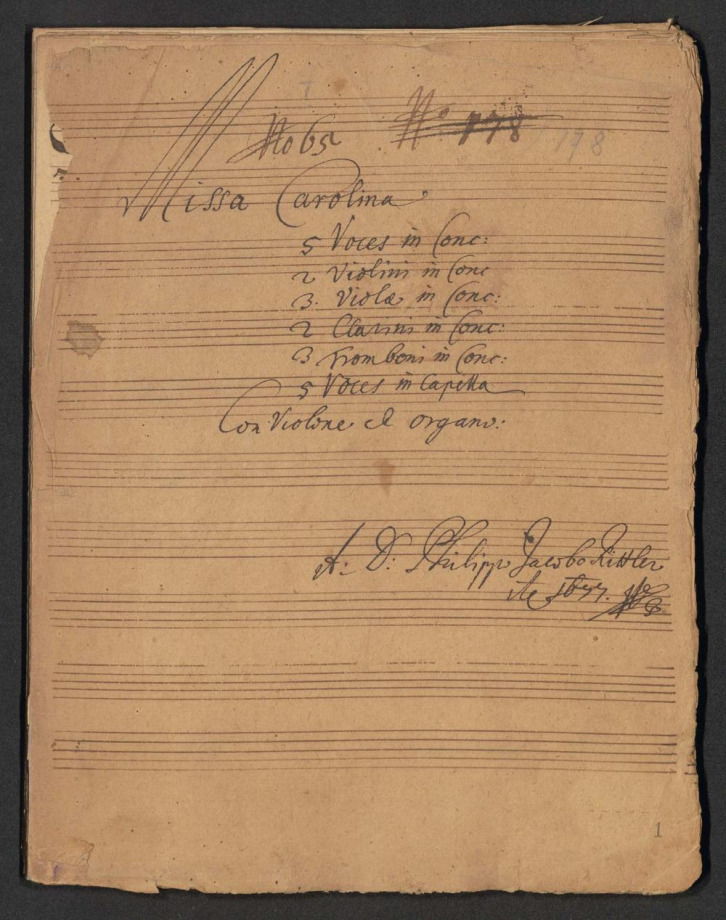 No 65 No 178 178
Missa Carolina
5 Voces in Conc:
2 Violini in Conc
3. Violæ in Conc:
2 Clarini in Conc:
3 Tromboni in Conc:
5 Voces in Capella
Con Violone et organo:
A: D: Philippo Jacobo Rittler
1677.
1